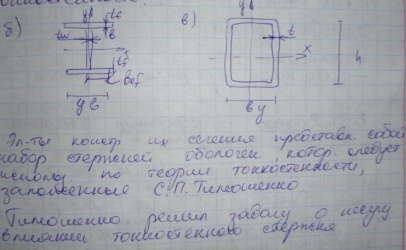 б)
в)
y
tf
tw
б
x
tf
bef
y
b
y
t
x
h
b
y
Эл-ты констр их сечения представл собой
набор стержней оболочек, котор. следует
по теории тонкостенности,
заложенные С.П. Тимошенко
Тимошенко решил задачу о
тонкостенного стержня